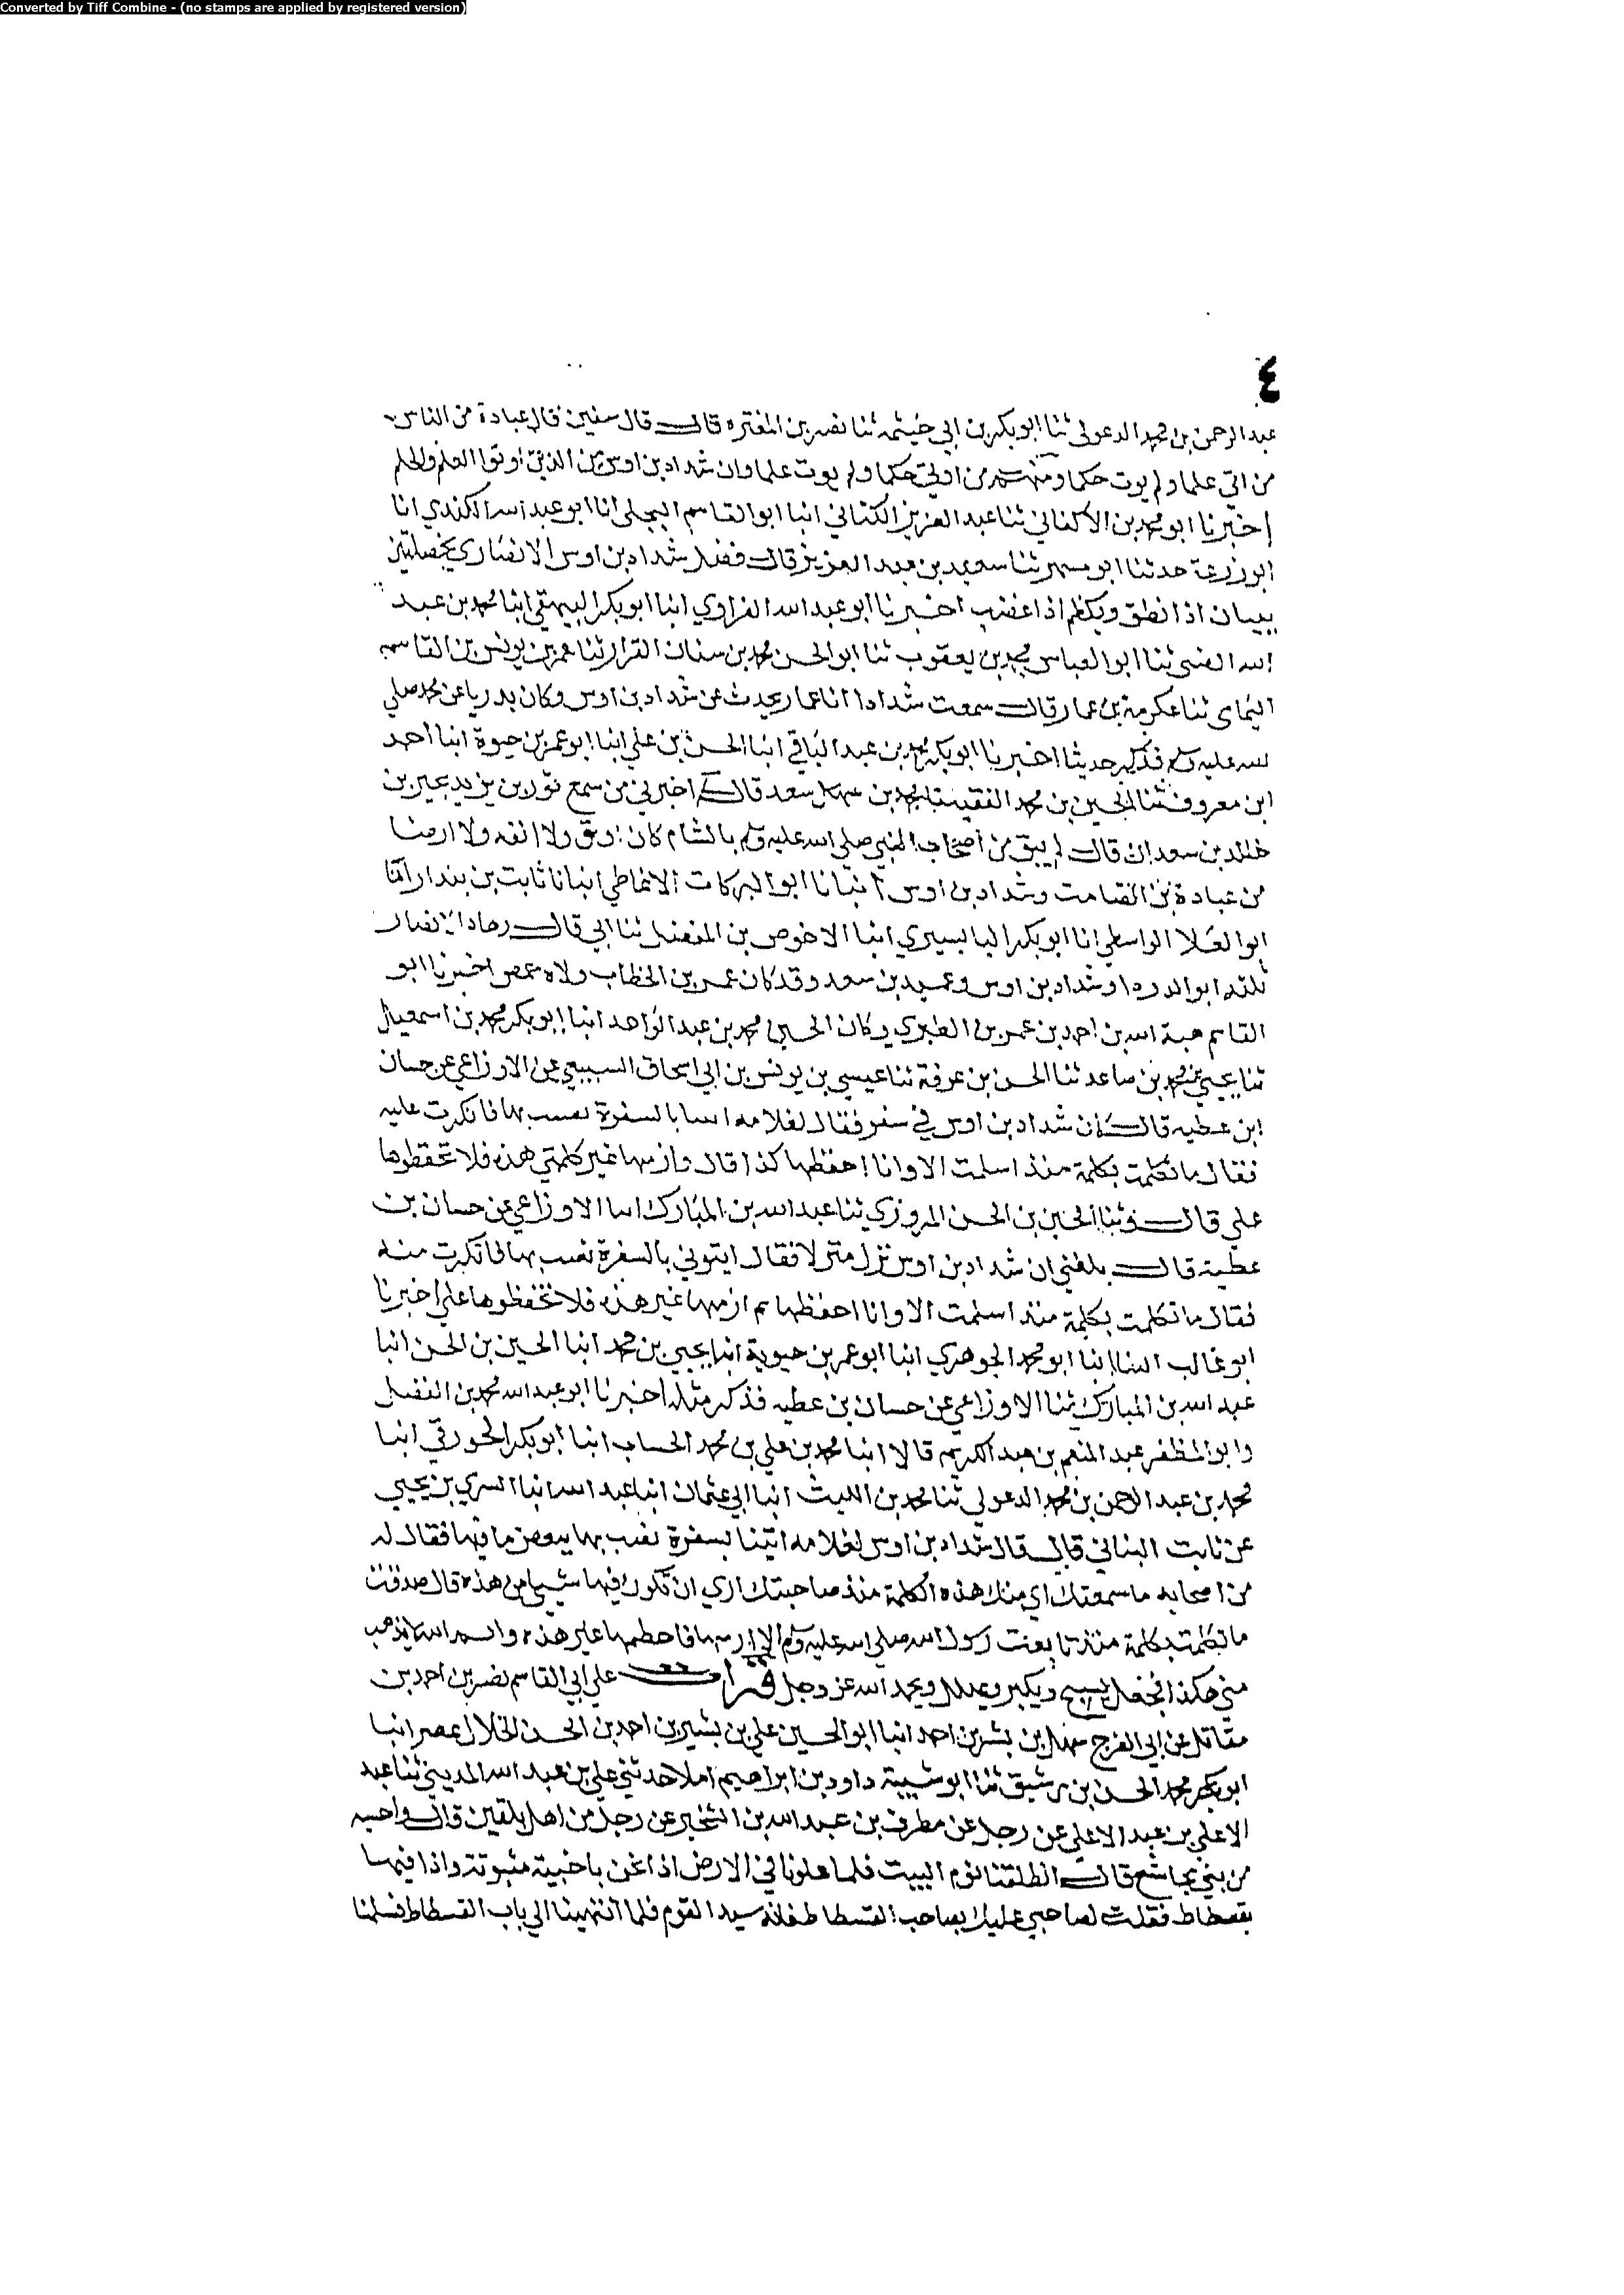 Converted by Tiff Combine - (no stamps are applied by registered version)
٤
عبد الرحمن بن محمد الدعولي ثنا ابو بكر بن ابي خيثمه ثنا نصر بن المغيره قال قال سفين قال عبادة من الناس
من اتي علما ولم يوت حكما ومنهم من اوتي حكما ولم يوت علما وان شداد بن اوس من الذين اوتوا العلم والحلم
اخبرنا ابو محمد بن الاكفاني ثنا عبد العزيز الكتاني انبا ابو القاسم البجلي انا ابو عبد الله الكندي انا
ابو زرعة حدثنا ابو مسهر ثنا سعيد بن عبد العزيز قال فضل شداد بن اوس الانصاري بخصلتين
ببيان اذا نطق ويكظم اذا غضب اخبرنا ابو عبد الله الفراوي انبا ابو بكر البيهقي ابنا محمد بن عبد
الله الضبي ثنا ابو العباس محمد بن يعقوب ثنا ابو الحسن محمد بن سنان القزاز ثنا عمر بن يونس بن القاسم
اليماي ثنا عكرمة بن عمار قال سمعت شدادا انا عمار يحدث عن شداد بن اوس وكان بدريا عن محمد صلي
لله عليه وسلم فذكر حديثا اخبرنا ابو بكر محمد بن عبد الباقي ابنا الحسن بن علي ابنا ابو عمر بن حيوة ابنا احمد
ابن معروف ثنا الحسين بن محمد الفقيه محمد بن سعد قال اخبرني من سمع ثور بن يزيد بن
خالد بن سعدان قال لم يبق من اصحاب النبي صلي الله عليه وسلم بالشام كان اوثق ولا افقه ولا ارضا
من عبادة بن الصامت وشداد بن اوس انبانا ابو البركات الانماطي انبانا ثابت بن بندار انا
ابو العلا الواسطي انا ابو بكر البابسيري ابنا الاخوص بن المفضل ثنا ابي قال زهاد الانصار
ثلثه ابو الدردا وشداد بن اوس وعميد بن سعد وقد كان عمر بن الخطاب ولاه حمص اخبرنا ابو
القاسم هبة الله بن احمد بن عمر بن الطبري وكان الحسين محمد بن عبد الواحد انبا ابو بكر محمد بن اسمعيل
ثنا يحيي بن محمد بن صاعد ثنا الحسن بن عرفة ثنا عيسي بن يونس بن ابي اسحاق السبيعي عن الاوزاعي عن حسان
ابن عطيه قال كان شداد بن اوس في سفر فقال لغلامه بالسفرة نعبث بها فانكرت عليه
فقال ما تكلمت بكلمة منذ اسلمت الا وانا احفظها كذا قال وازمها غير كلمتي هذه فلا تحفظوها
علي قال وثنا الحسين بن الحسن المروزي ثنا عبد الله بن المبارك انا الاوزاعي عن حسان بن
عطية قال بلغني ان شداد بن اوس نزل منزلا فقال ايتوني بالسفرة نعبث بها فانكرت منه
فقال ما تكلمت بكلمة منذ اسلمت الا وانا احفظها ثم ازمها غير هذه فلا تحفظوها علي اخبرنا
ابو غالب البنا ابنا ابو محمد الجوهري ابنا ابو عمر بن حيوية ابنا يحيي بن محمد ابنا الحسين بن الحسن انبا
عبد الله بن المبارك ثنا الاوزاعي عن حسان بن عطيه فذكر مثله اخبرنا ابو عبد الله محمد بن الفضل
وابو المظفر عبد المنعم بن عبد الكريم قالا ابنا محمد بن علي بن محمد الحساب ابنا ابو بكر الحورقي ابنا
محمد بن عبد الرحمن بن محمد الدعولي ثنا محمد بن الليث انبا ابي عثمان انبا عبد الله انبا السري بن يحيي
عن ثابت البناني قال قال شداد بن اوس لغلامه ايتنا بسفرة نعبث بها ببعض ما فيها فقال له
من اصحابه ما سمعتك اي منك هذه الكلمة منذ صاحبتك اري ان تكون فيها شيي من هذه قال صدقت
ما تكلمت بكلمة منذ تابعت رسول الله صلي الله عليه وسلم الا ازمها غير هذه وايم الله لا يذهب
مني هكذا فجعل يسبح ويكبر ويهلل ويحمد الله عز وجل قرات علي ابي القاسم نصر بن احمد بن
مقاتل عن ابي الفرج سهل بن بشر بن احمد انبا ابو الحسين علي بن بشير بن احمد بن الحسن الخلال بمصر انبا
ابو بكر محمد الحسن بن رشيق ثنا ابو شيبة داود بن ابراهيم املا حدثني علي بن عبد الله المديني ثنا عبد
الاعلي بن عبد الاعلي عن رجل عن مطرف بن عبد الله بن الشخير عن رجل من اهل بلقين قال واحبه
من بني مجاشع قال انطلقنا نوم البيت فلما علونا في الارض اذا نحن باخبية مثبوتة واذا فيها
بفسطاط فقلت لصاحبي عليك بصاحب الفسطاط فانه سيد القوم فلما انتهينا الي باب الفسطاط فسلمنا